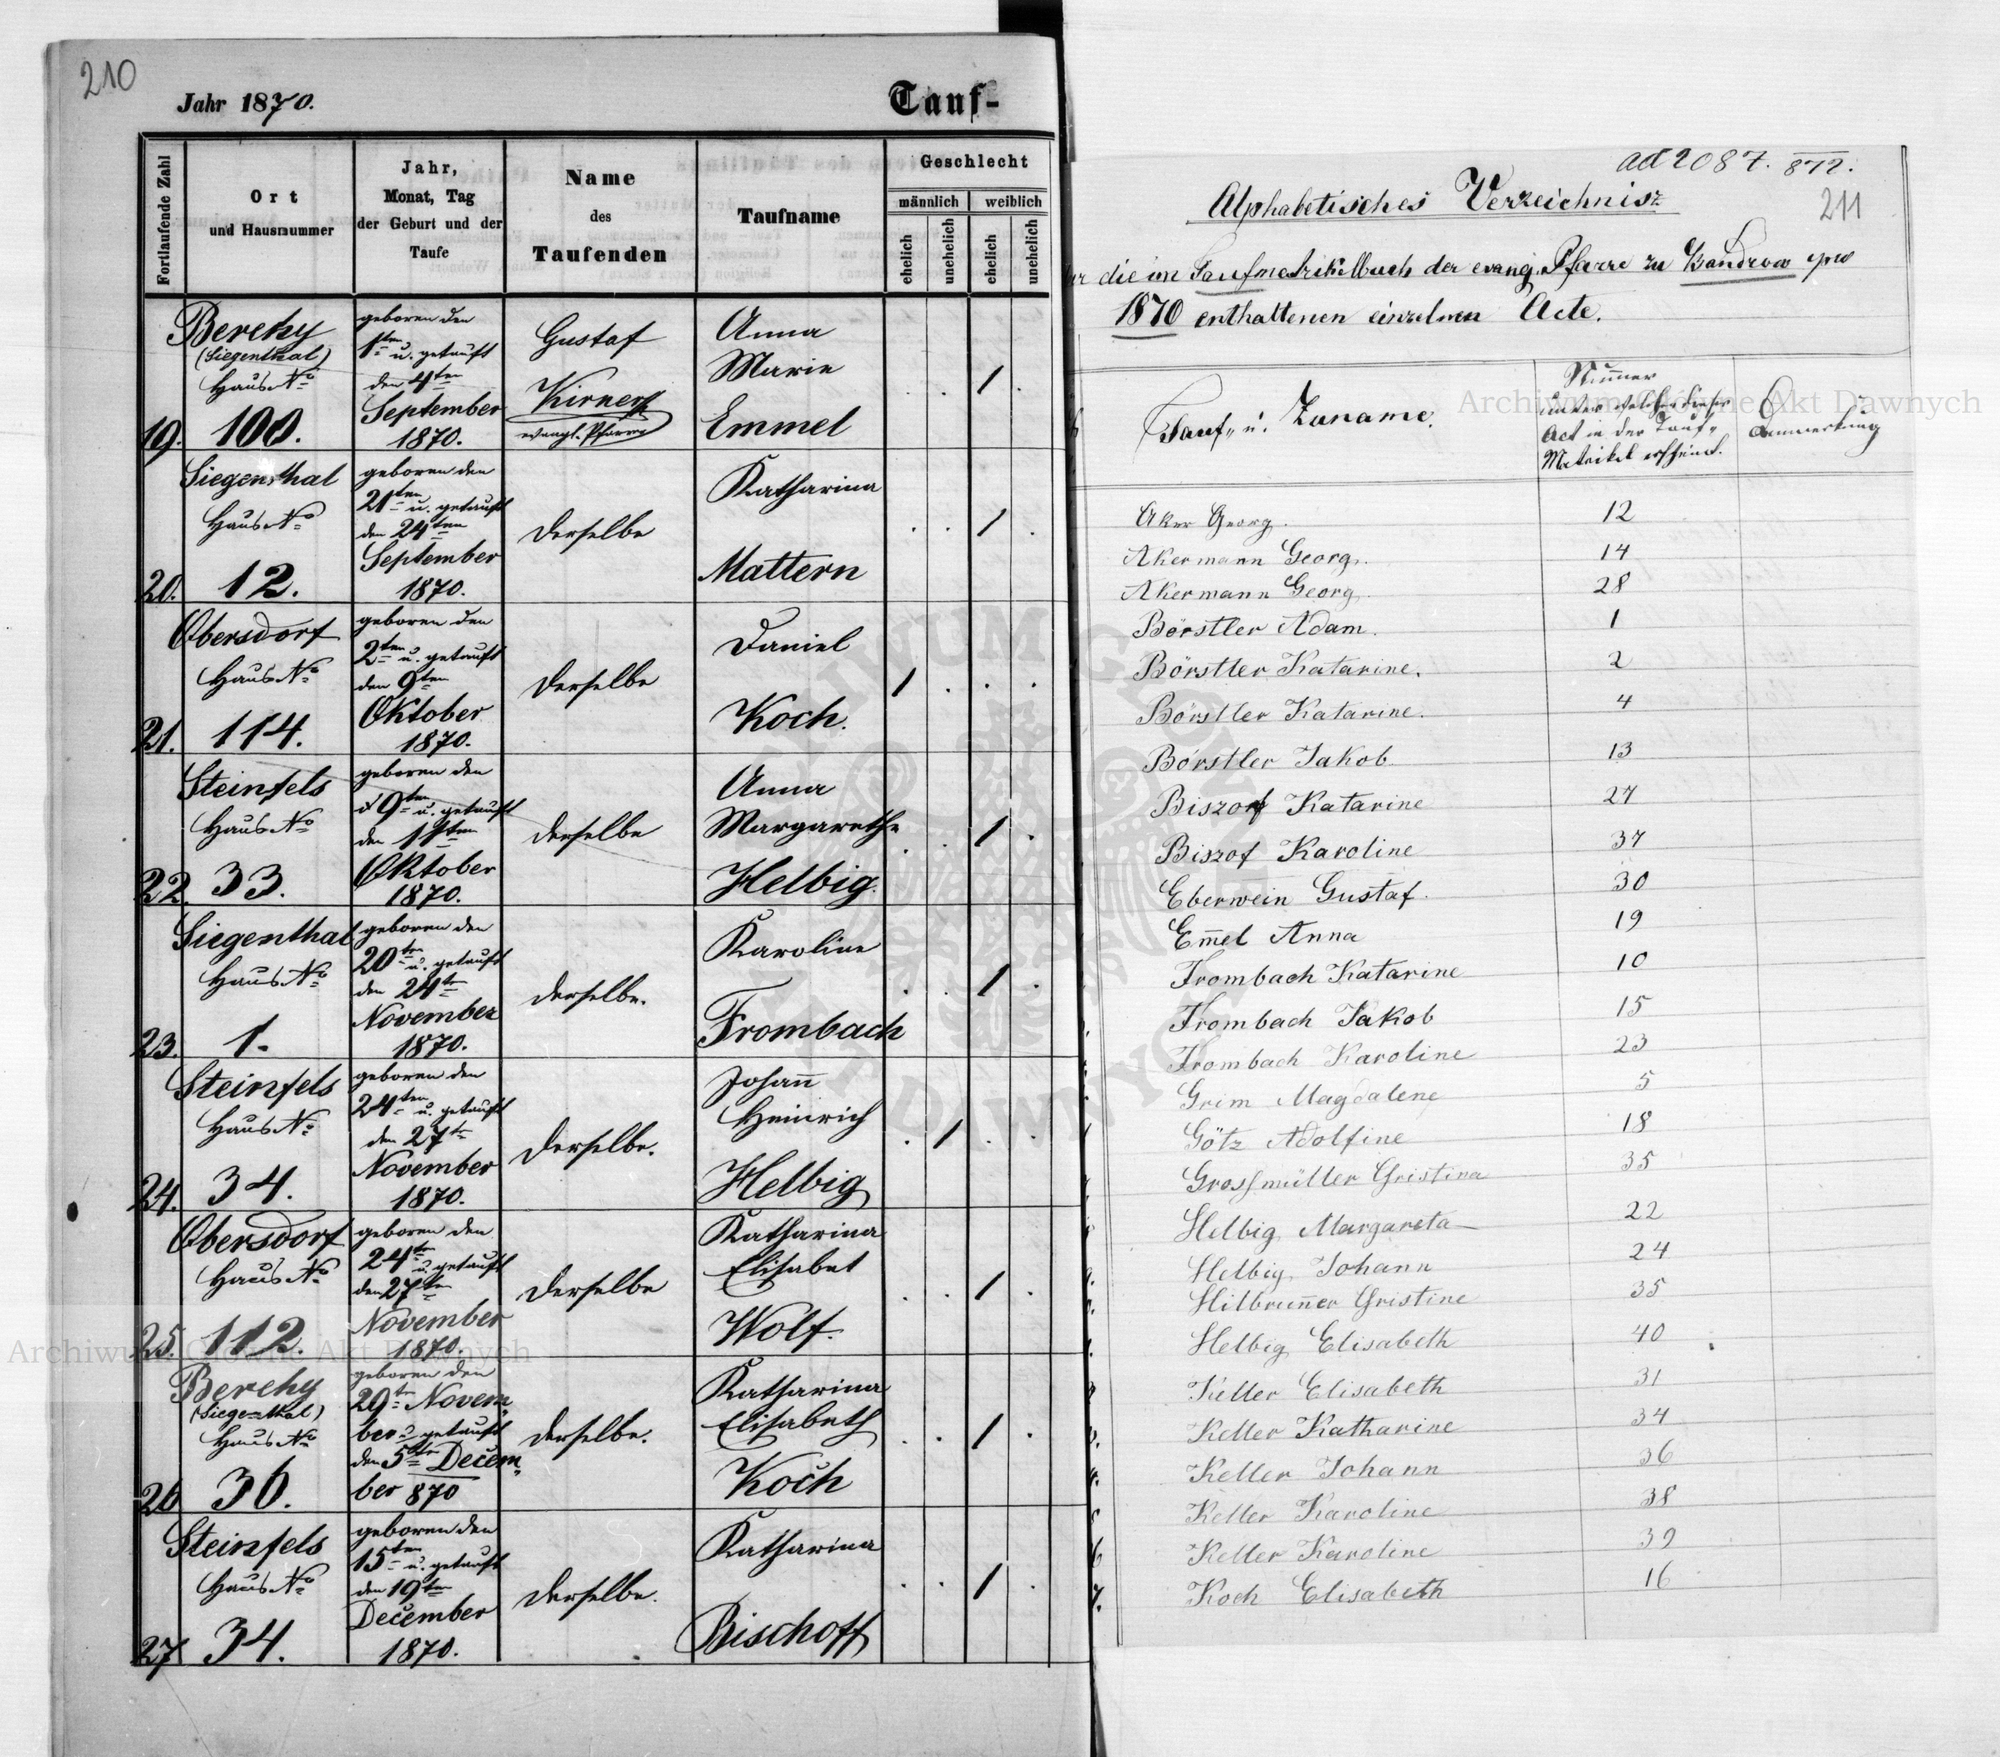 210
Jahr 1870.
Tauf-
Fortlaufende Zahl
Ort
und Hausnummer
Jahr,
Monat, Tag
der Geburt und der
Taufe
Name
des
Taufenden
Taufname
Geschlecht
männlich
weiblich
ehelich
unehelich
ehelich
unehelich
19.
Berehy
(Siegenthal)
Haus No
100.
geboren den
1ten u. getauft
den 4ten
September
1870.
Gustaf
Kirner
evangl. Pfarrer
Anna
Marie
Emmel
. . 1 .
20.
Siegenthal
Haus No
12.
geboren den
21ten u. getauft
den 24ten
September
1870.
derselbe
Katharina
Mattern
. . 1 .
21.
Obersdorf
Haus No
114.
geboren den
2ten u. getauft
den 9ten
Oktober
1870.
derselbe
Daniel
Koch.
1 . . .
22.
Steinfels
Haus No
33.
geboren den
9ten u. getauft
den 11ten
Oktober
1870.
derselbe
Anna
Margarethe
Helbig.
. . 1 .
23.
Siegenthal
Haus No
1.
geboren den
20ten u. getauft
den 24ten
November
1870.
derselbe.
Karoline
Frombach
. . 1 .
24.
Steinfels
Haus No
34.
geboren den
24ten u. getauft
den 27te
November
1870.
derselbe.
Johan̄
Heinrich
Helbig
. 1 . .
25.
Obersdorf
Haus No
112.
geboren den
24te u. getauft
den 27ten
November
1870.
derselbe
Katharina
Elisabet
Wolf.
. . 1 .
26
Berehy
(Siegenthal)
Haus No
36.
geboren den
29te Novem„
ber u. getauft
den 5te Decem„
ber 870
derselbe.
Katharina
Elisabeth
Koch
. . 1 .
27
Steinfels
Haus No
34.
geboren den
15ten u. getauft
den 19ten
December
1870.
derselbe.
Katharina
Bischoff
. . 1 .
ad 2087. 872.
211
Alphabetisches Verzeichnisz
die im Taufmatrikelbuch der evang. Pfarre zu Bandrow pro
1870 enthaltenen einzelnen Acte.
Tauf„ u. Zuname.
Num̄er
unter welcher dieser
Act in der Tauf„
Matrikel erscheint.
Anmerkung
Aker Georg. 12
Akermann Georg. 14
Akermann Georg. 28
Börstler Adam. 1
Börstler Katarine. 2
Börstler Katarine. 4
Börstler Jakob 13
Biszof Katarine 27
Biszof Karoline 37
Eberwein Gustaf. 30
Em̄el Anna 19
Frombach Katarine 10
Frombach Jakob 15
Frombach Karoline 23
Grim Magdalene 5
Götz Adolfine 18
Grossmüller Gristina 35
Helbig Margareta 22
Helbig Johann 24
Hilbrun̄er Gristine 35
Helbig Elisabeth 40
Keller Elisabeth 31
Keller Katharine 34
Keller Johann 36
Keller Karoline 38
Keller Karoline 39
Koch Elisabeth 16
Archiwum Główne Akt Dawnych
Archiwum Główne Akt Dawnych
ARCHIWUM GŁÓWNE AKT DAWNYCH